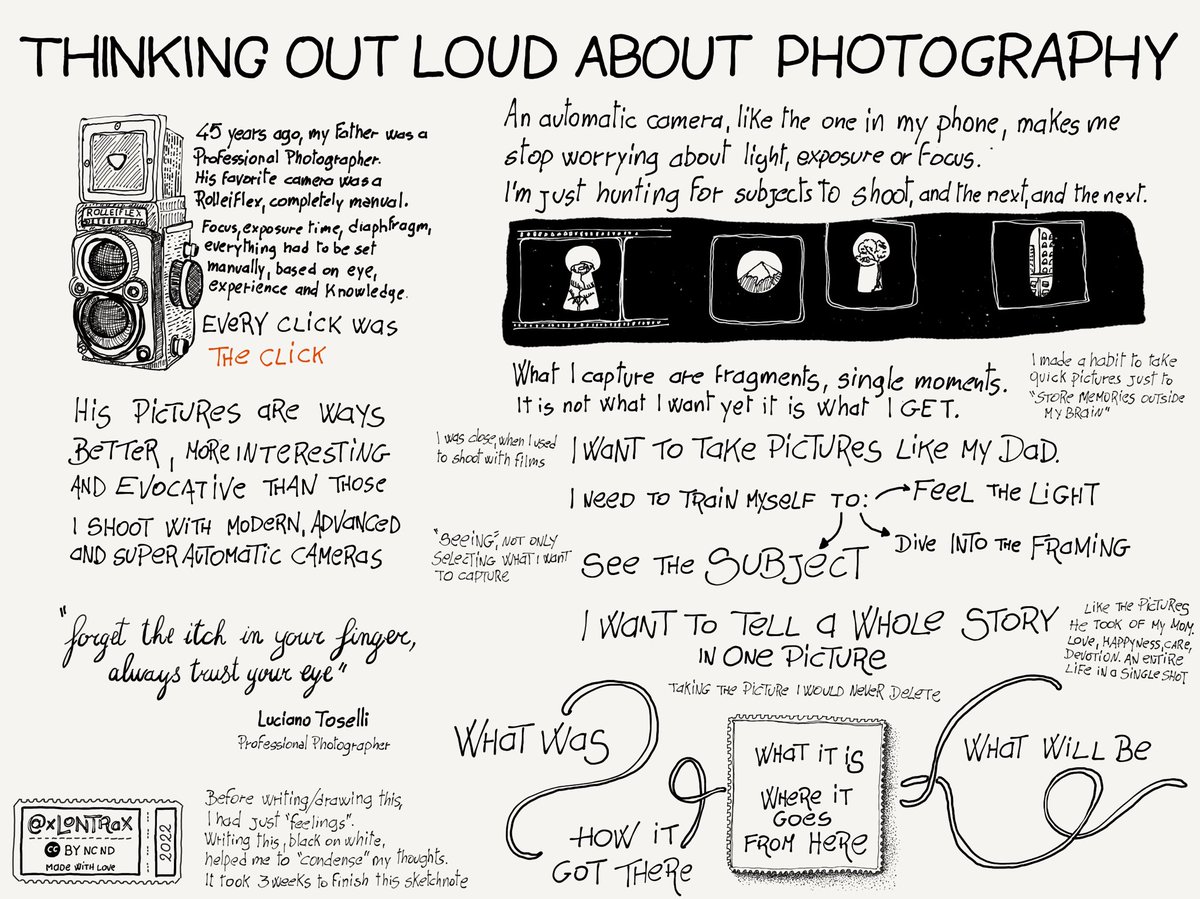 THINKING OUT LOUD ABOUT PHOTOGRAPHY
45 years ago, my Father was a
Professional Photographer.
His favorite camera was a
Rolleiflex, completely manual.
Focus, exposure time, diaphfragm,
everything had to be set
manually, based on eye,
experience and Knowledge.
EVERY CLICK WAS
THE CLICK
ROLLEIFLEX
HIS PICTURES ARE WAYS
BETTER, MORE INTERESTING
AND EVOCATIVE THAN THOSE
I SHOOT WITH MODERN, ADVANCED
AND SUPER AUTOMATIC CAMERAS
"forget the itch in your finger,
always trust your eye"
Luciano Toselli
Professional Photographer
@xLONTRAX
CC BY NC ND
MADE WITH LOVE
2022
Before writing/drawing this,
I had just "feelings".
Writing this, black on white,
helped me to "condense" my thoughts.
It took 3 weeks to finish this sketchnote
An automatic camera, like the one in my phone, makes me
stop worrying about light, exposure or focus.
I'm just hunting for subjects to shoot, and the next, and the next.
What I capture are fragments, single moments.
It is not what I want yet it is what I GET.
I made a habit to take
quick pictures just to
"STORE MEMORIES OUTSIDE
MY BRAIN"
I was close, when I used
to shoot with films
I WANT TO TAKE PICTURES LIKE MY DAD.
I NEED TO TRAIN MYSELF TO:
FEEL THE LIGHT
DIVE INTO THE FRAMING
SEE THE SUBJECT
"SEEING", NOT ONLY
SELECTING WHAT I WANT
TO CAPTURE
I WANT TO TELL A WHOLE STORY
IN ONE PICTURE
LIKE THE PICTURES
HE TOOK OF MY MOM.
LOVE, HAPPYNESS, CARE,
DEVOTION. AN ENTIRE
LIFE IN A SINGLE SHOT
TAKING THE PICTURE I WOULD NEVER DELETE
WHAT WAS
HOW IT
GOT THERE
WHAT IT IS
WHERE IT
GOES
FROM HERE
WHAT WILL BE